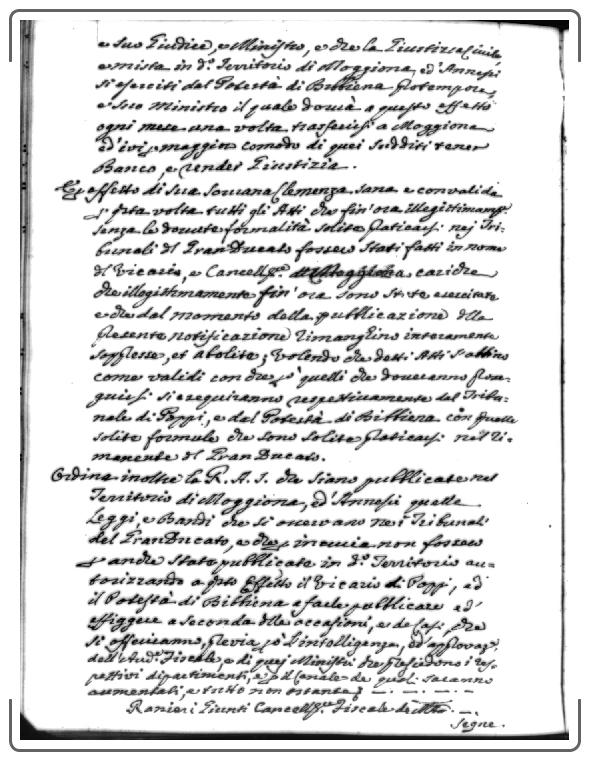 e Suo Giudice, e Ministro, e che la Giustizia Civile
e mista in d.º Territorio di Moggiona, ed' Annessi
si eserciti dal Potestà di Bibbiena protempore,
e Suo Ministro il quale dovrà a questo effetto
ogni mese una volta trasferirsi a Moggiona
ed' ivi p maggior comodo di quei Sudditi tener
Banco, e render Giustizia.
Ex effetto di Sua Sovrana Clemenza sana e convalida
p q.sta volta tutti gli Atti che fin' ora illegittimam.e
senza le dovute formalità solite praticarsi nei Tri-
bunali del Gran Ducato fossero Stati fatti in nome
di Vicario, e Cancell.re cariche
che illegittimamente fin' ora sono state esercitate
e che dal momento della pubblicazione della
presente notificazione rimanghino interamente
soppresse, et abolite; Volendo che detti Atti s' abbino
come validi con che p quelli che dovranno prose-
guirsi si eseguiranno respettivamente dal Tribu-
nale di Poppi, e dal Potestà di Bibbiena con quelle
solite formule che sono solite praticarsi nel ri-
manente del Gran Ducato.
Ordina inoltre la R. A. S. che siano pubblicate nel
Territorio di Moggiona, ed' Annessi quelle
Leggi, e Bandi che si osservano nei Tribunali
del Gran Ducato, e che p incuria non fossero
p anche State pubblicate in d.º Territorio au-
torizzando a q.sto Effetto il Vicario di Poppi, ed'
il Potestà di Bibbiena a farle pubblicare ed'
affiggere a seconda delle occasioni, e de Casi, che
si offeriranno, previa p l' intelligenza, ed' approvaz.e
dell' Aud.e Fiscale, e di quei Ministri che presiedono i res-
pettivi dipartimenti, e p il Canale de quali saranno
aumentati, e tutto non ostante
Ranieri Giunti Cancell.re Fiscale
Segue.